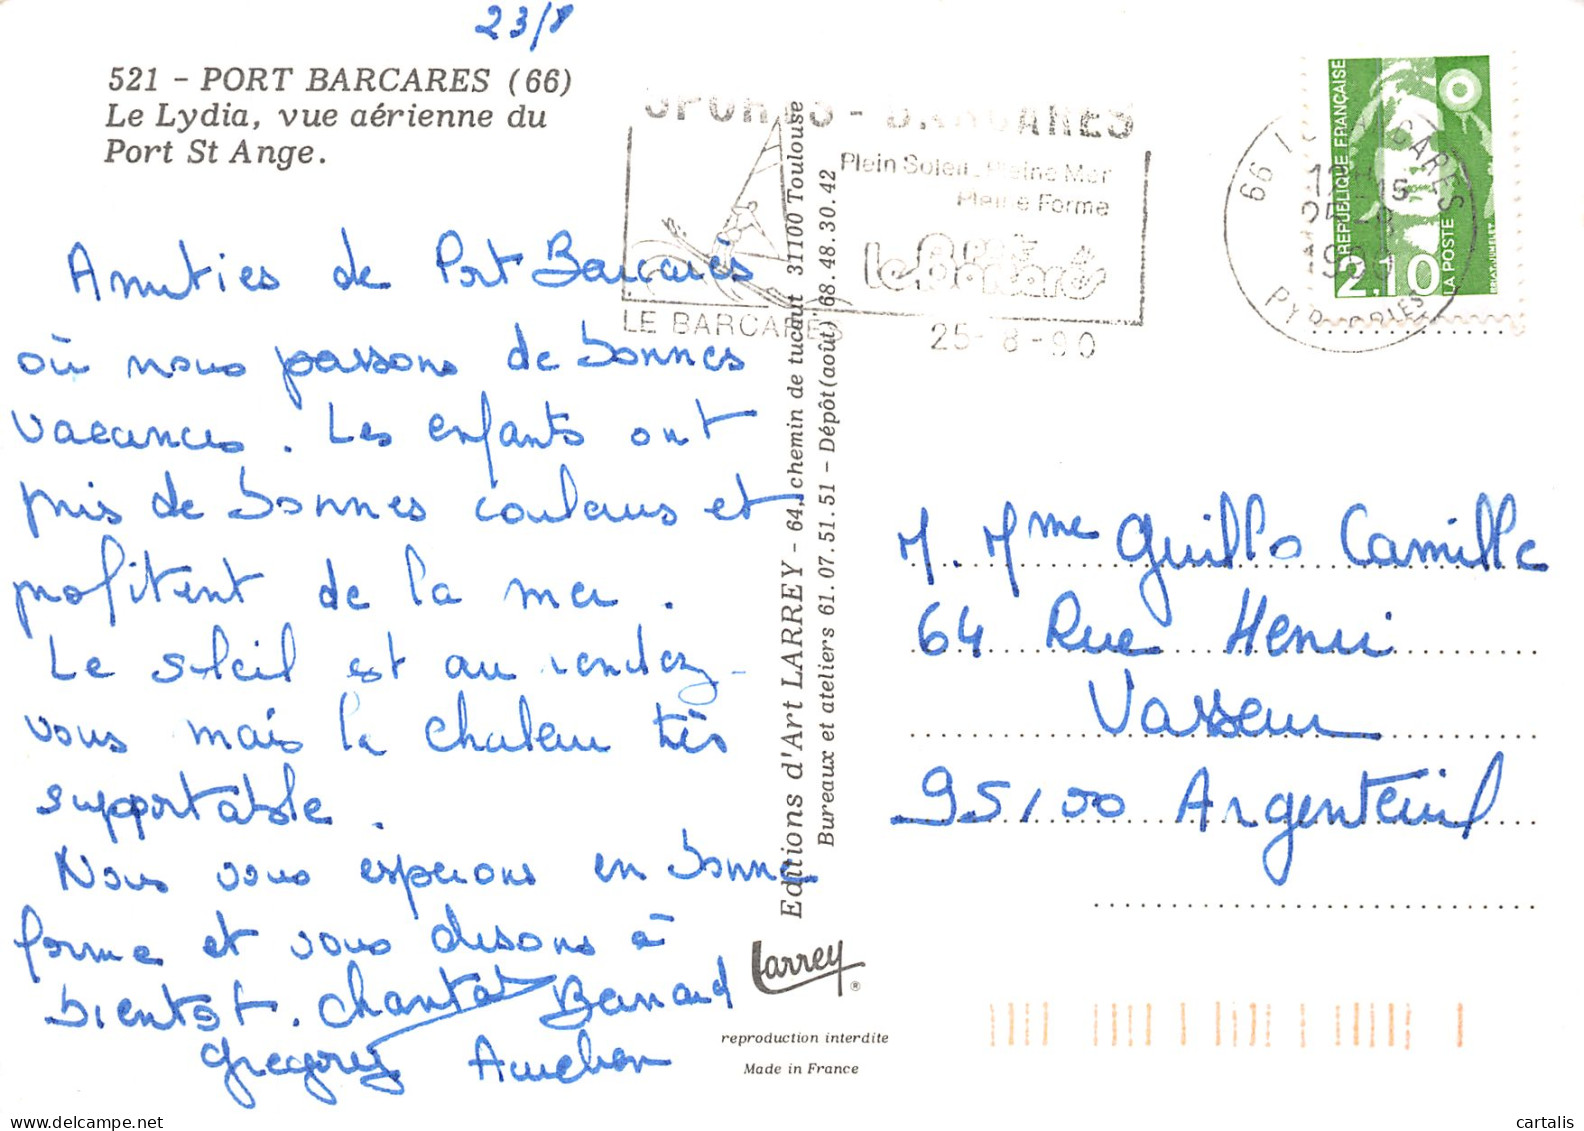 23/8
521 - PORT BARCARES (66)
Le Lydia, vue aérienne du
Port St Ange.
Amitiés de Port Barcarès
où nous passons de bonnes
vacances. Les enfants ont
pris de bonnes couleurs et
profitent de la mer.
Le soleil est au rendez-
vous mais la chaleur très
supportable.
Nous vous esperons en bonne
forme et vous disons à
bientôt. Chantal Bernard
Gregory
Editions d'Art LARREY - 64, chemin de tucaut 31100 Toulouse
Bureaux et ateliers 61.07.51.51 - Dépôt (août) 68.48.30.42
Larrey ®
reproduction interdite
Made in France
SPORTS - BARCARES
Plein Soleil - Pleine Mer
Pleine Forme
LE BARCARES
25-8-90
66 BARCARES
PYR. ORLES
REPUBLIQUE FRANÇAISE
2,10
LA POSTE
BRIAT-JUMELET
M. Mme Guillo Camille
64 Rue Henri
Vasseur
95100 Argenteuil
cartalis